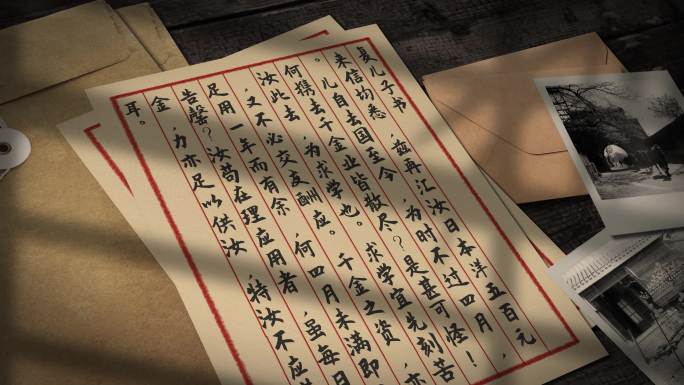 复儿子书
来信均悉 兹再汇汝日本洋五百元，
。儿自去国至今 为时不过四月，
何携去千金业皆散尽？是甚可怪！
汝此去 为求学也。求学宜先刻苦
又不必交友酬应。 千金之资 亦
足用一年而有余 何四月未满即
告罄？汝苟在理应用者 虽每日
金 力亦足以供汝 特汝不应
耳。